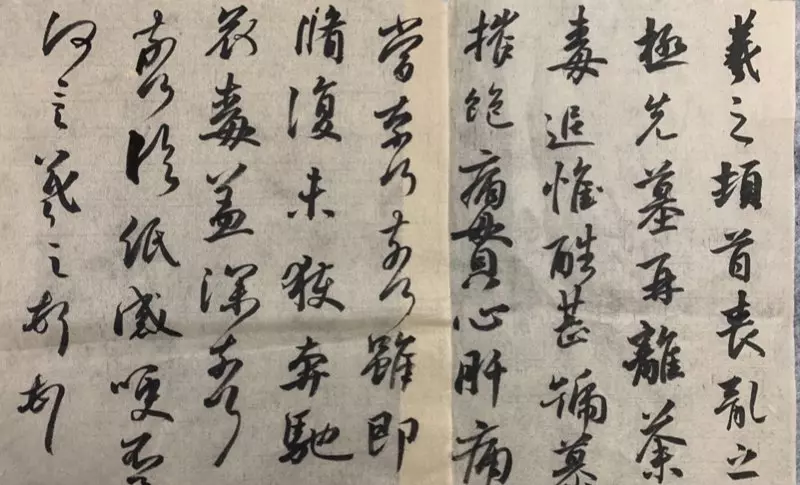 羲之頓首喪亂之
極先墓再離荼
毒追惟酷甚號慕
摧絶痛貫心肝痛
當奈何奈何雖即
脩復未獲奔馳
哀毒益深奈何
奈何臨紙感哽不
何言羲之頓首頓首